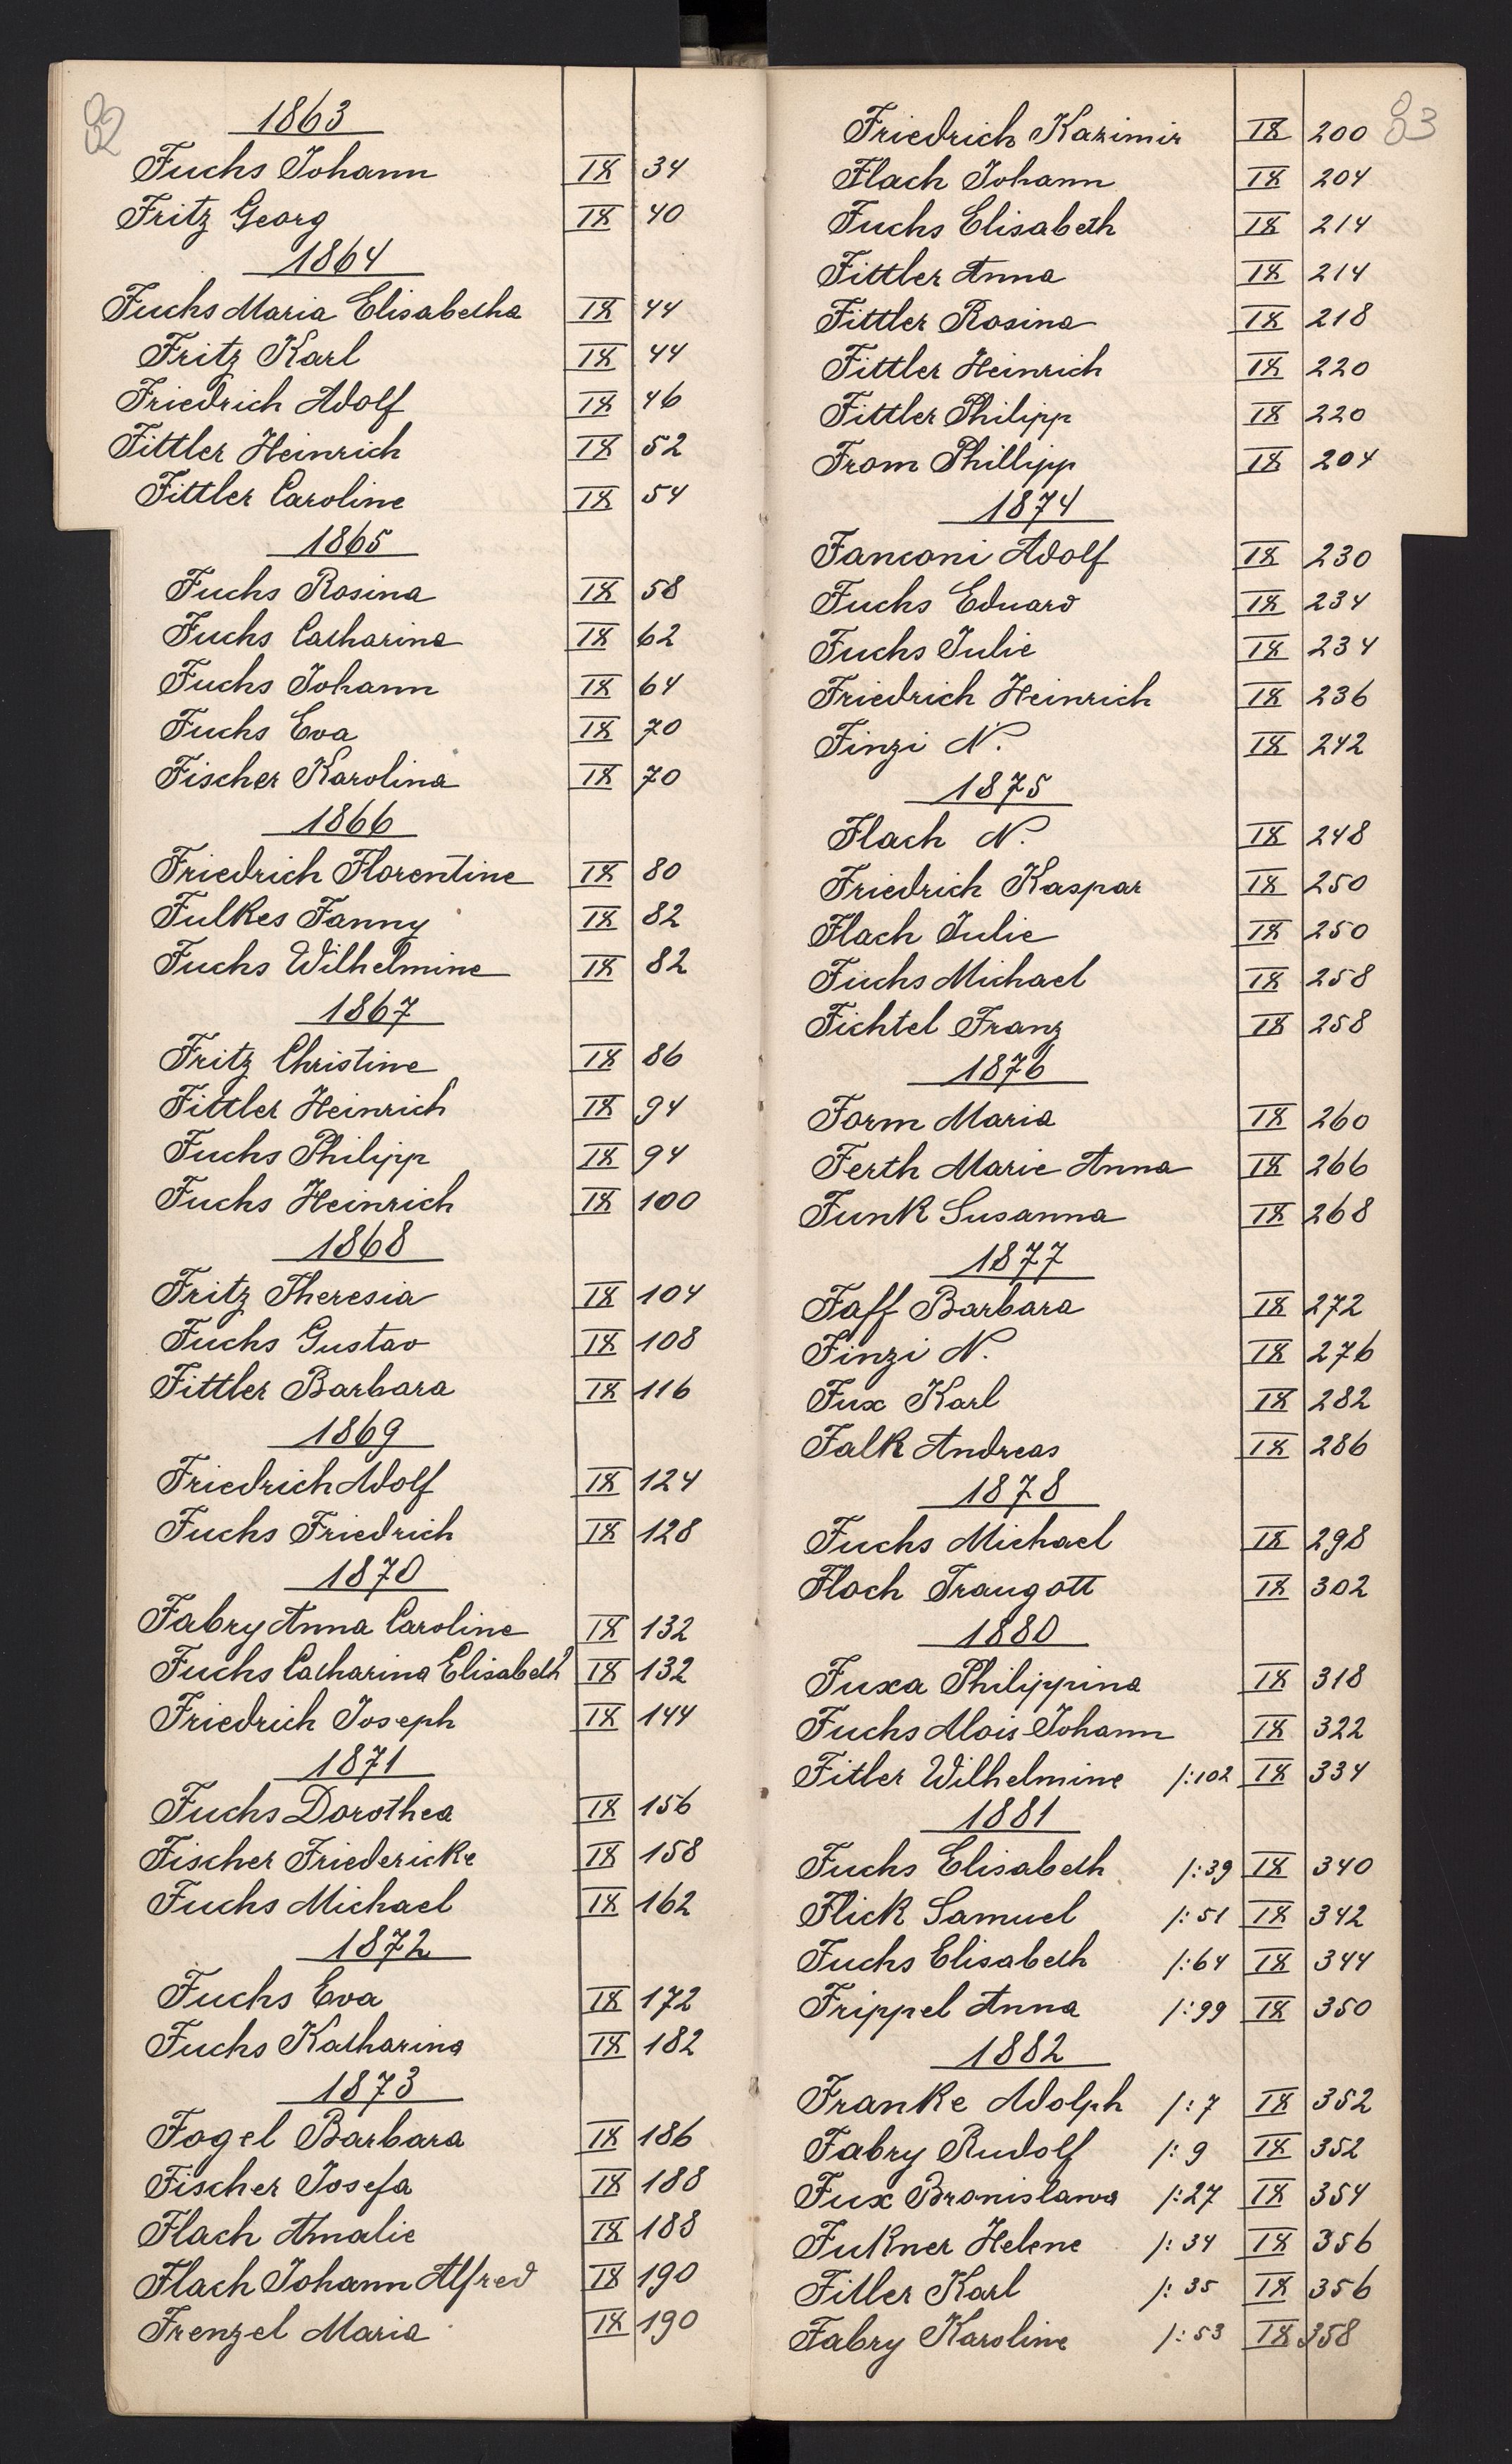 82
1863
Fuchs Johann IX 34
Fritz Georg IX 40
1864
Fuchs Maria Elisabetha IX 44
Fritz Karl IX 44
Friedrich Adolf IX 46
Fittler Heinrich IX 52
Fittler Caroline IX 54
1865
Fuchs Rosina IX 58
Fuchs Catharina IX 62
Fuchs Johann IX 64
Fuchs Eva IX 70
Fischer Karolina IX 70
1866
Friedrich Florentine IX 80
Fulkes Fanny IX 82
Fuchs Wilhelmine IX 82
1867
Fritz Christine IX 86
Fittler Heinrich IX 94
Fuchs Philipp IX 94
Fuchs Heinrich IX 100
1868
Fritz Theresia IX 104
Fuchs Gustav IX 108
Fittler Barbara IX 116
1869
Friedrich Adolf IX 124
Fuchs Friedrich IX 128
1870
Fabry Anna Caroline IX 132
Fuchs Catharina Elisabeth IX 132
Friedrich Joseph IX 144
1871
Fuchs Dorothea IX 156
Fischer Friedericke IX 158
Fuchs Michael IX 162
1872
Fuchs Eva IX 172
Fuchs Katharina IX 182
1873
Fogel Barbara IX 186
Fischer Josefa IX 188
Flach Amalie IX 188
Flach Johann Alfred IX 190
Frenzel Maria IX 190
83
Friedrich Kazimir IX 200
Flach Johann IX 204
Fuchs Elisabeth IX 214
Fittler Anna IX 214
Fittler Rosina IX 218
Fittler Heinrich IX 220
Fittler Philipp IX 220
From Phillipp IX 204
1874
Fanconi Adolf IX 230
Fuchs Eduard IX 234
Fuchs Julie IX 234
Friedrich Heinrich IX 236
Finzi N. IX 242
1875
Flach N. IX 248
Friedrich Kaspar IX 250
Flach Julie IX 250
Fuchs Michael IX 258
Fichtel Franz IX 258
1876
Form Maria IX 260
Ferth Marie Anna IX 266
Funk Susanna IX 268
1877
Faff Barbara IX 272
Finzi N. IX 276
Fux Karl IX 282
Falk Andreas IX 286
1878
Fuchs Michael IX 298
Flach Traugott IX 302
1880
Fuxa Philippina IX 318
Fuchs Alois Johann IX 322
Fitler Wilhelmine /:102 IX 334
1881
Fuchs Elisabeth /:39 IX 340
Flick Samuel /:51 IX 342
Fuchs Elisabeth /:64 IX 344
Frippel Anna /:99 IX 350
1882
Franke Adolph /:7 IX 352
Fabry Rudolf /:9 IX 352
Fux Bronislawa /:27 IX 354
Fukner Helene /:34 IX 356
Fitler Karl /:35 IX 356
Fabry Karoline /:53 IX 358